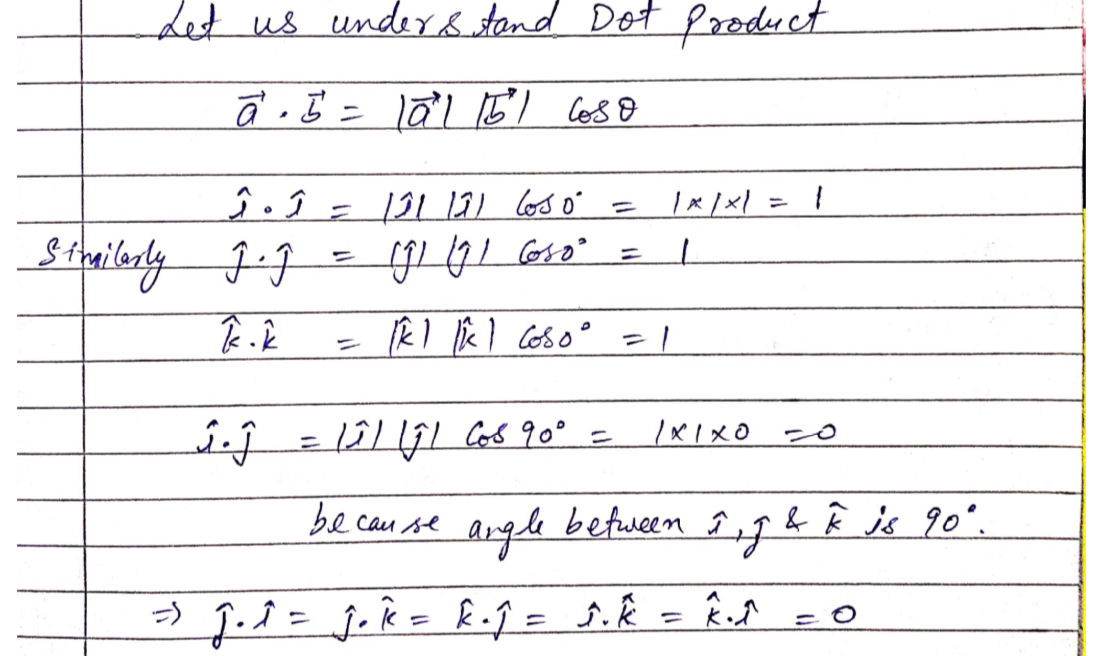 Let us understand Dot Product
a⃗ . b⃗ = |a⃗| |b⃗| Cosθ
î . î = |î| |î| Cos0° = 1×1×1 = 1
Similarly ĵ . ĵ = |ĵ| |ĵ| Cos0° = 1
k̂ . k̂ = |k̂| |k̂| Cos0° = 1
î . ĵ = |î| |ĵ| Cos 90° = 1×1×0 = 0
because angle between î, ĵ & k̂ is 90°.
⇒ ĵ . î = ĵ . k̂ = k̂ . ĵ = î . k̂ = k̂ . î = 0